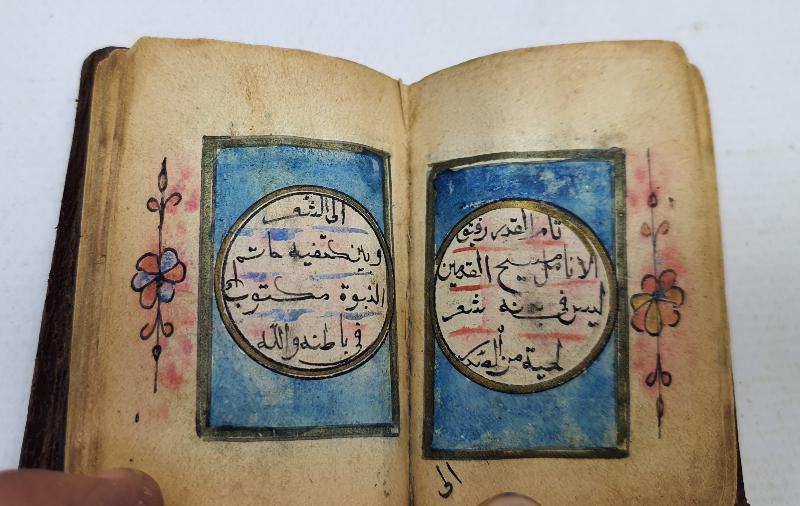 تام القدم رقيق
الانامل مسيح القدمين
ليس في بدنه شعر
لحية من الصدر
الى
الى الشعر
وبين كتفيه خاتم
النبوة مكتوب
في باطنه والله